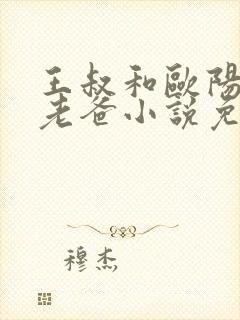 王叔和歐陽
老爸小說免
穆杰